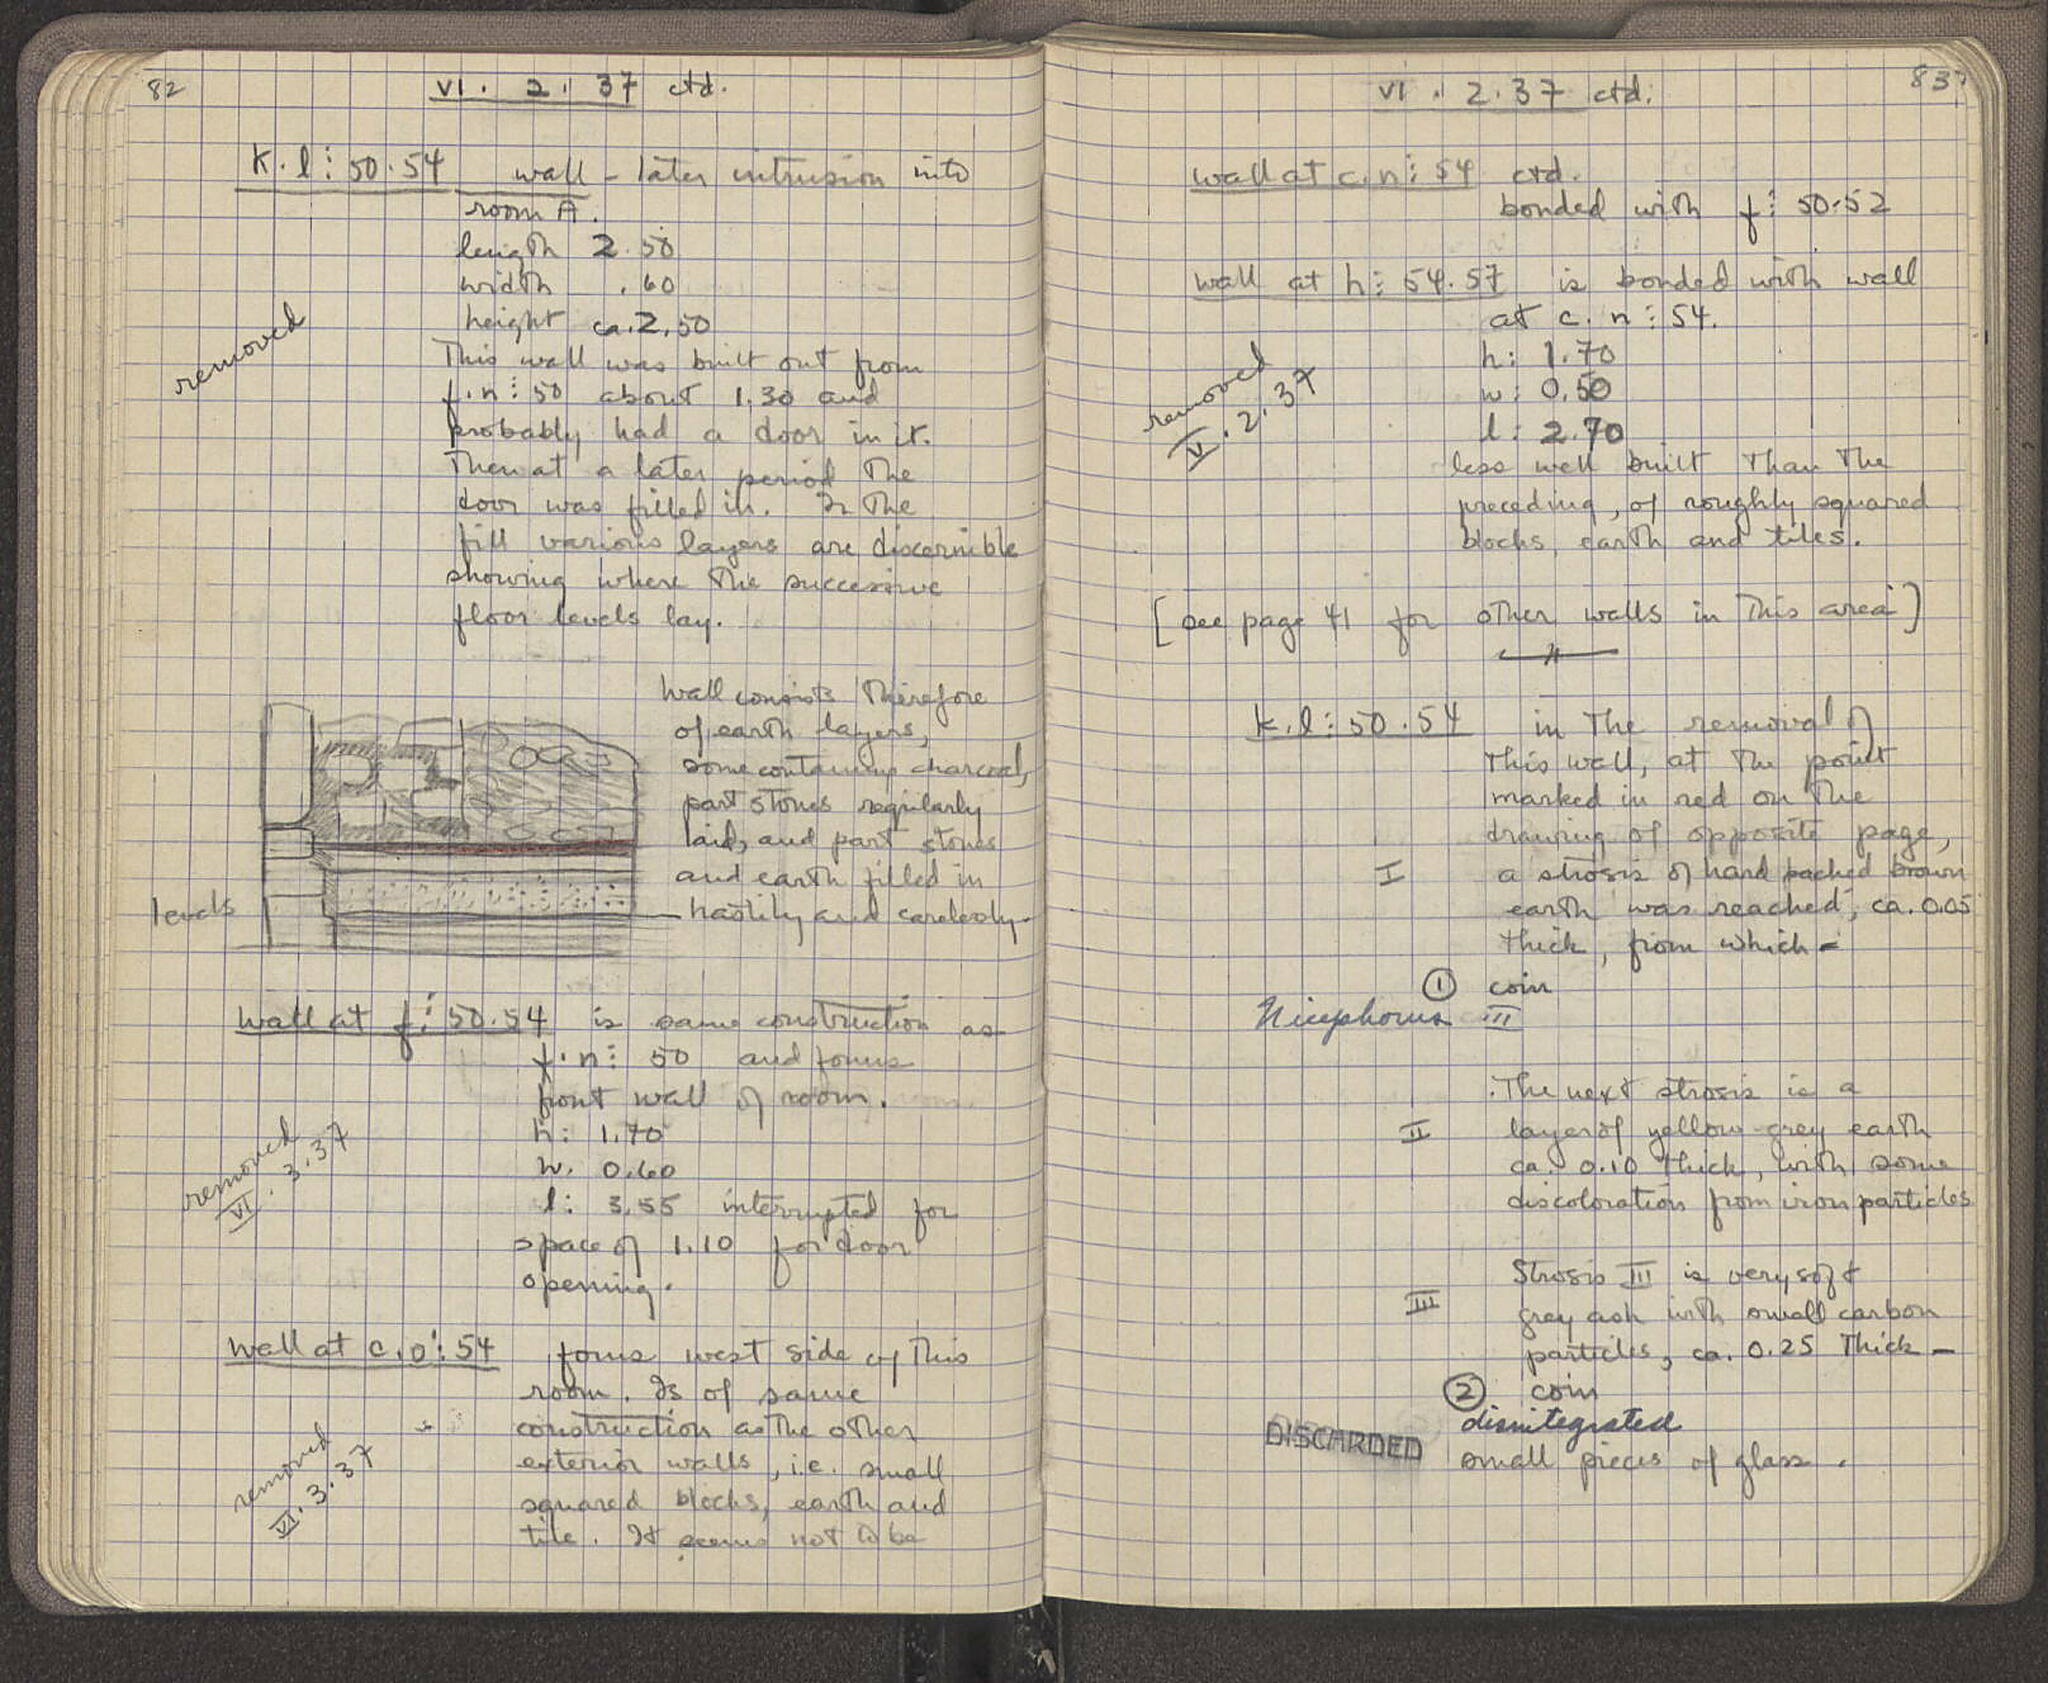 82
VI. 2. 37 ctd.
K.l:50.54 wall - later intrusion into
room A.
length 2.50
width .60
height ca. 2.50
removed
This wall was built out from
f.n:50 about 1.30 and
probably had a door in it.
Then at a later period the
door was filled in. In the
fill various layers are discernible
showing where the successive
floor levels lay.
Wall consists therefore
of earth layers,
some containing charcoal,
part stones regularly
laid, and part stones
and earth filled in
hastily and carelessly.
levels
Wall at f:50.54 is same construction as
f.n: 50 and forms
front wall of room.
h: 1.70
w. 0.60
l: 3.55 interrupted for
space of 1.10 for door
opening.
removed
VI. 3.37
Wall at c.n:54 forms west side of this
room. Is of same
construction as the other
exterior walls, i.e. small
squared blocks, earth and
tile. It seems not to be
removed
VI. 3.37
837
VI. 2.37 ctd.
Wall at c.n:54 ctd.
bonded with f: 50-52
Wall at h:54.57 is bonded with wall
at c.n:54.
h: 1.70
w: 0.50
l: 2.70
removed
VI. 2.37
less well built than the
preceding, of roughly squared
blocks, earth and tiles.
[see page 41 for other walls in this area]
K.l:50.54 in the removal of
this wall, at the point
marked in red on the
drawing of opposite page,
I a strosis of hard packed brown
earth was reached, ca. 0.05
thick, from which -
① coin
Nicephorus III
The next strosis is a
II layer of yellow-grey earth
ca. 0.10 thick, with some
discoloration from iron particles
Strosis III is very soft
III grey ash with small carbon
particles, ca. 0.25 thick -
② coin
disintegrated
DISCARDED small pieces of glass.